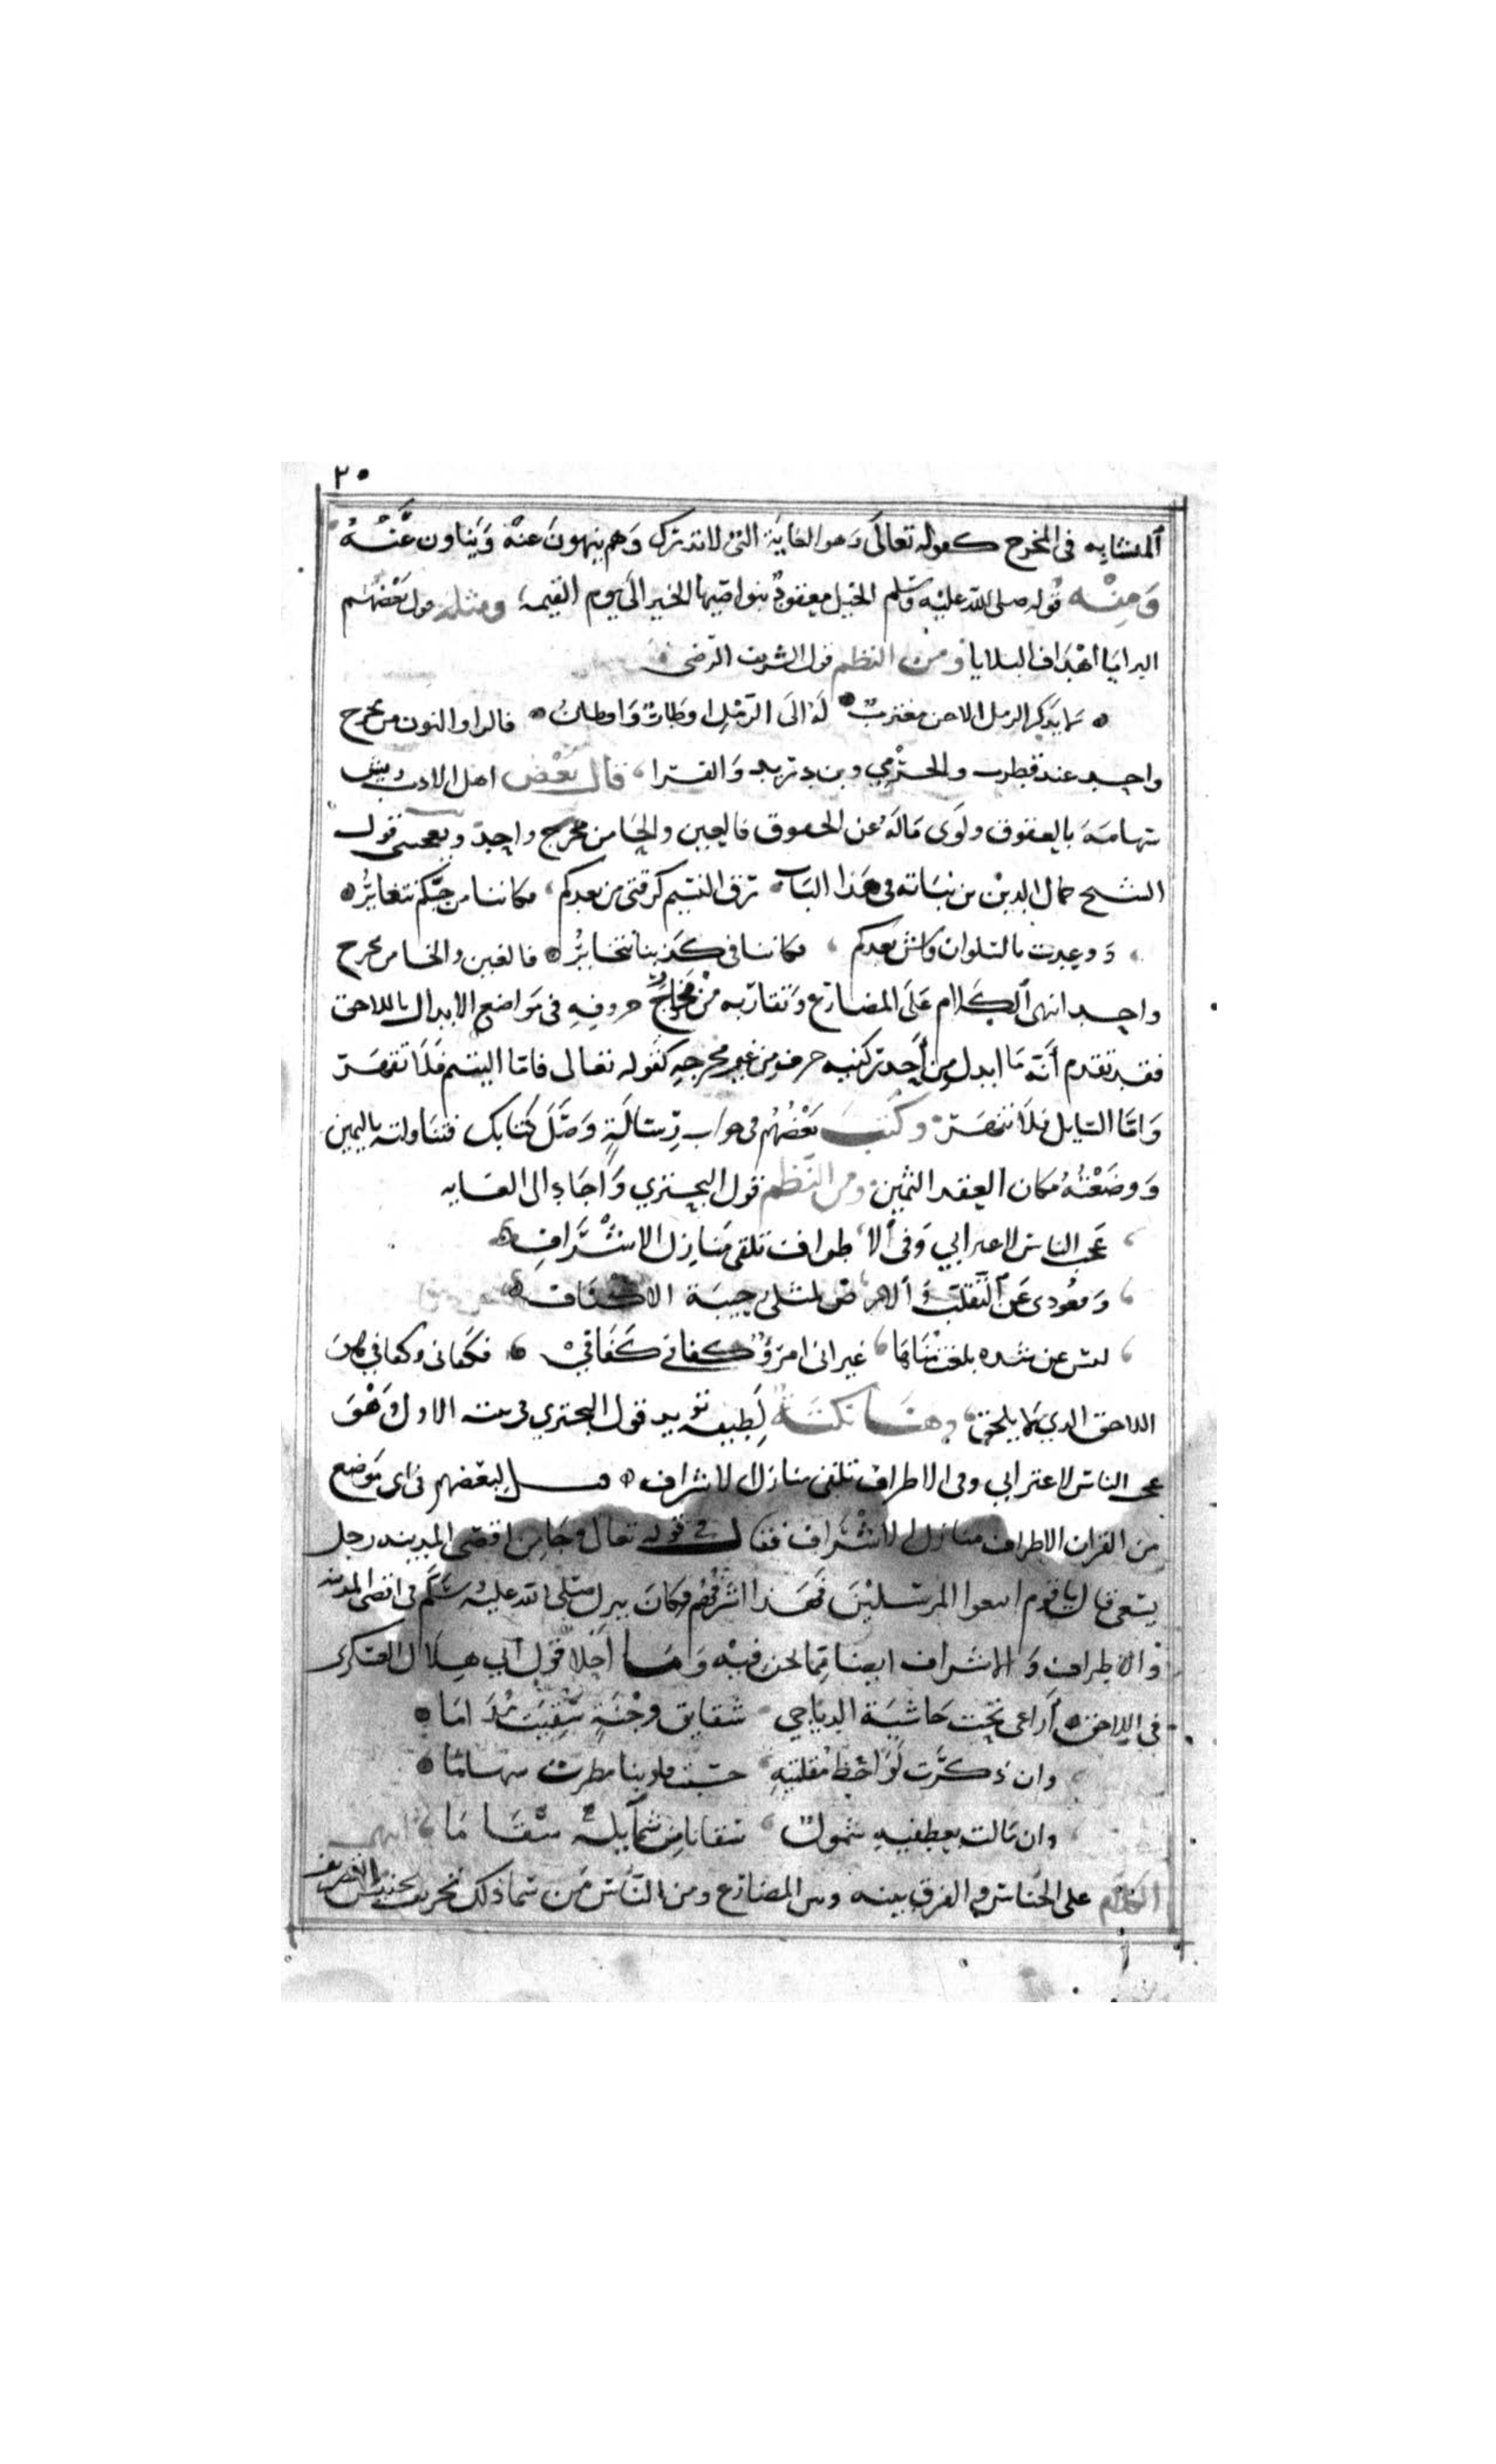 ٢٠
المتشابه في المخرج كقوله تعالى وهو الغاية التي لا تدرك وهم ينهون عنه وينأون عنه
وَمِنْه قوله صلى الله عليه وسلم الخيل معقود بنواصيها الخير الى يوم القيمة ومثله قول بعضهم
البرايا اهداف البلايا ومن النظم قول الشريف الرضي
لا يذكر الرمل الا حن مغترب له الى الرمل اوطار واوطان فالرا والنون من مخرج
واحد عند قطرب والجرمي وبن دريد والفرا قال بعض اهل الادب
سهامه بالعقوق ولوى ماله عن الحقوق فالعين والحا من مخرج واحد ويعجبني قول
الشيخ جمال الدين بن نباته في هذا الباب رق النسيم كرقتي من بعدكم فكاننا من حيكم نتغاير
ووعدت بالسلوان واش بعدكم فكاننا في كذبنا نتخاير فالغين والخا من مخرج
واحد انتهى الكلام على المضارع وتقاربه من مخارج حروفه في مواضع الابدال باللاحق
فقد تقدم أنّه ما ابدل من أحد ركنيه حرف من غير مخرجه كقوله تعالى فاما اليتيم فلا تقهر
واما السايل فلا تنهر وكتب بعضهم في جواب رسالة وصل كتابك فتناولته باليمين
ووضعته مكان العقد الثمين ومن النظم قول البحتري واجاد الى الغايه
عجب الناس لاعترابي وفي الاطراف تلقى منازل الاشراف
وقعودي عن التقلب والارض لمثلي رحيبة الاكناف
ليس عن ثروة بلغت مداها غير اني امرؤ كفاني كفافي فكفاني وكفافي هو
اللاحق الذي لا يلحق وهنا نكتة لطيفه تويد قول البحتري في بيته الاول وهو
عجب الناس لاعترابي وفي الاطراف تلقى منازل الاشراف قيل لبعضهم في اي موضع
من القران الاطراف منازل الاشراف فقال في قوله تعالى وجا من اقصى المدينه رجل
يسعى قال يا قوم اتبعوا المرسلين فهذا اشرفهم وكان ينزل صلى الله عليه وسلم في اقصى المدينه
والاطراف والاشراف ايضا مما نحن فيه وما أحلا قول ابي هلال العسكري
في اللاحق أراعي تحت حاشية الدياجي شقايق وجنة سقيت مداما
وان ذكرت لواحظ مقلتيه حسبت قلوبنا مطرت سهاما
وان مالت بعطفيه شمول سقانا من شمايله سقاما انتهى
الكلام على الجناس والفرق بينه وبين المضارع ومن الناس من سما ذلك تجنيس التصريف